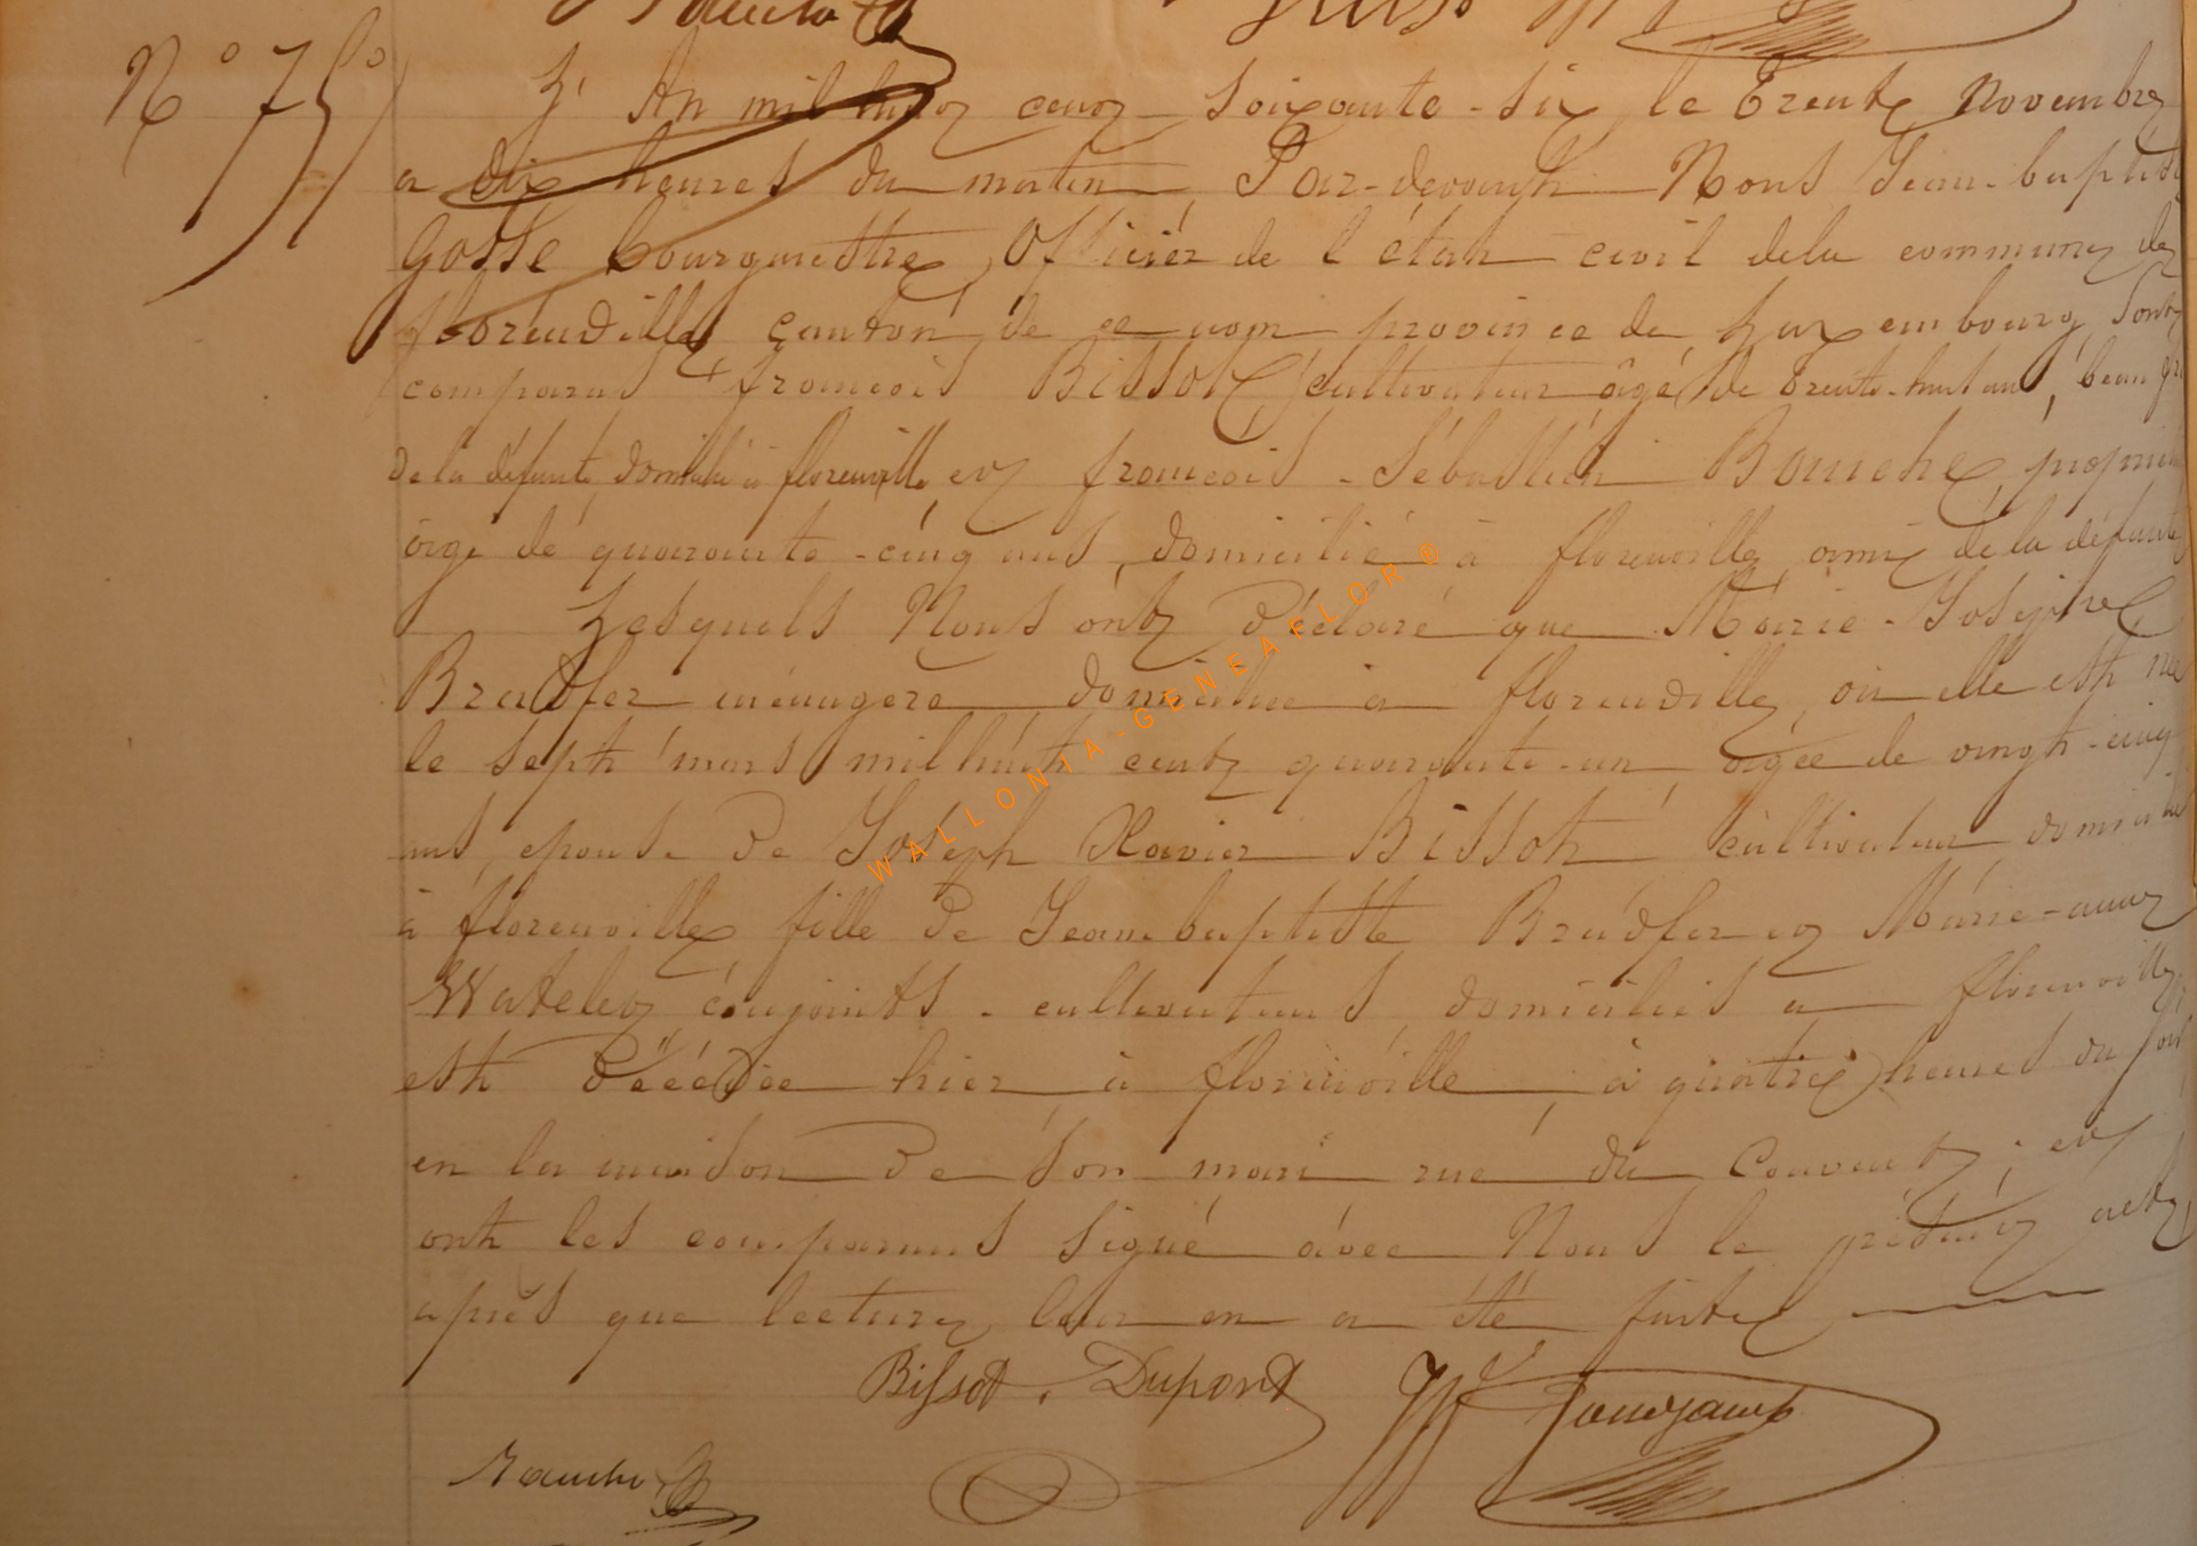 N° 75
L'An mil huit cent soixante-six, le trente Novembre
a dix heures du matin, Par-devant Nous Jean-baptiste
Gosse bourgmestre, Officier de l'état civil de la commune de
florenville, canton de ce nom province de Luxembourg, sont
comparus françois Bissot, cultivateur âgé de trente-huit ans, beau frè
de la défunte, domicilié à florenville, et françois-Sébastien Bouché, propriét
âgé de quarante-cinq ans, domicilié à florenville, ami de la défunte
Lesquels Nous ont déclaré que Marie-Josephe
Bradfer ménagère domiciliée à florenville, où elle est née
le sept mars mil huit cent quarante-un, âgée de vingt-cinq
ans, épouse de Joseph Xavier Bissot cultivateur domicilié
à florenville, fille de Jean baptiste Bradfer et Marie-anne
Watelet conjoints-cultivateurs, domiciliés à florenville,
est décédée hier à florenville, à quatre heures du soir
en la maison de son mari rue du Couvent; et
ont les comparus signé avec Nous le présent acte,
après que lecture leur en a été faite
Bissot. Dupont
WALLONIA-GENEAFLOR®